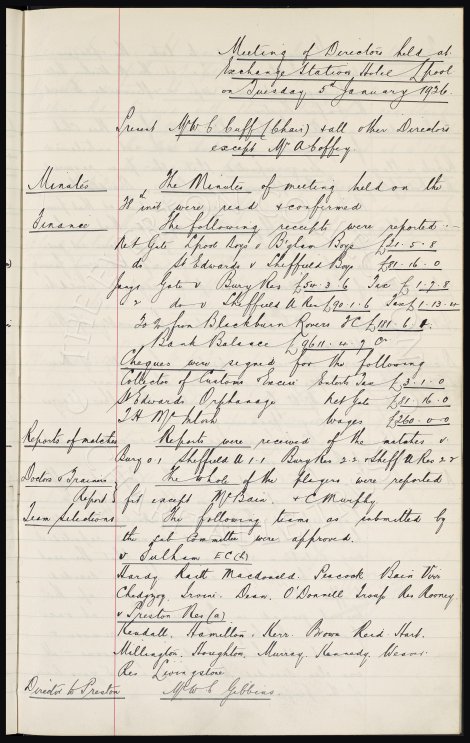 Meeting of Directors held at
Exchange Station Hotel L'pool
on Tuesday 5th January 1926.
Present Mr W C Cuff (Chair) & all other Directors
except Mr A Coffey.
Minutes The Minutes of meeting held on the
ult were read & confirmed
Finance The following receipts were reported :-
Net Gate L'pool Boys v B'gham Boys £21.5.8
do St Edwards v Sheffield Boys £81.16.0
Gate v Bury Res £54.3.6 Tax £1.7.8
do v Sheffield U Res £90.1.6 Tax £1.13.4
20% from Blackburn Rovers FC £181.6.0.
Bank Balance £9611.4.7
Cheques were signed for the following
Collector of Customs Excise Enterts Tax £3.1.0
St Edwards Orphanage Net Gate £81.16.0
T H McIntosh Wages £260.0.0
Reports of matches Reports were received of the matches v
Bury 0.1, Sheffield U 1.1 Bury Res 2.2 & Sheff U Res 2.2
Doctors & Trainers The whole of the players were reported
Report fit except McBain & C Murphy
Team Selections The following teams as submitted by
the sub Committee were approved.
v Fulham EC (h)
Hardy Raitt Macdonald. Peacock Bain Virr
Chedgzoy. Irvine. Dean. O'Donnell Troup Res Rooney
v Preston Res (a)
Kendall. Hamilton. Kerr. Brown Reid. Hart.
Millington, Houghton, Murray. Kennedy. Weaver.
Res. Livingstone
Director to Preston Mr W C Gibbins.